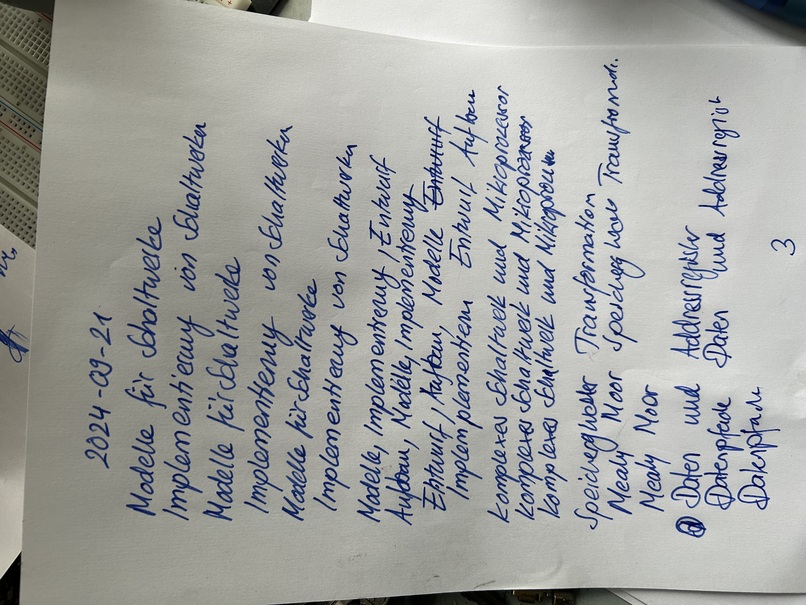 2024-09-21
Modelle für Schaltwerke
Implementierung von Schaltwerken
Modelle für Schaltweke
Implementierung von Schaltwerken
Modelle für Schaltwerke
Implementierung von Schaltwerken
Modelle, Implementierung, Entwurf
Aufbau, Modelle, Implementierung
Entwurf, Aufbau, Modelle Entwurf
Implementieren Entwurf Aufbau
Komplexes Schaltwerk und Mikroprozessor
Komplexes Schaltwerk und Mikroprozessor
Komplexes Schaltwerk und
Transformation
Mealy Moor
Mealy Moor
Daten und Addressregister
Datenpfade Daten und Addressregister
Datenpfade
3